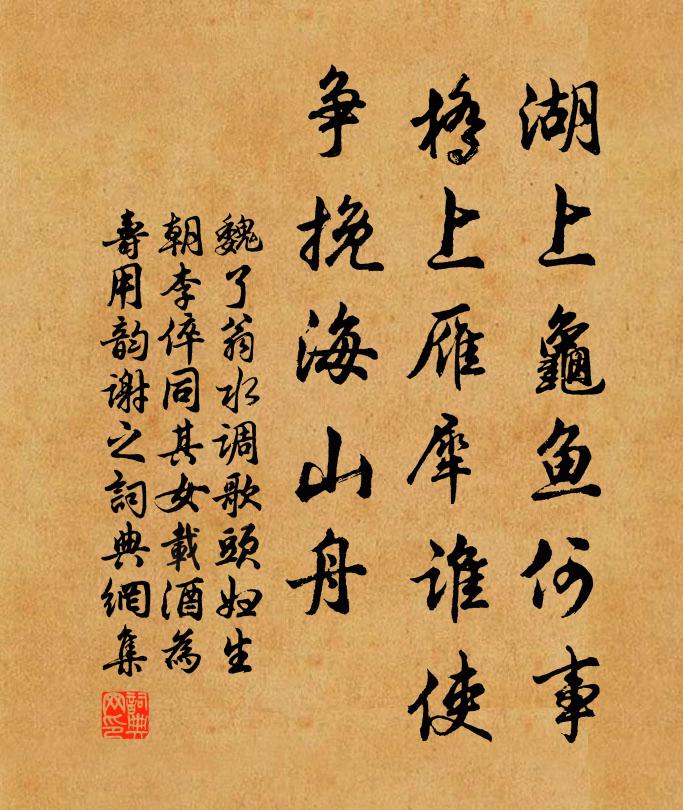 湖上龜鱼何事
橋上雁犀谁使
争挽海山舟
魏了翁水调歌頭妇生
朝李倅同其女載酒為
壽用韵谢之詞典網集
詞典网印